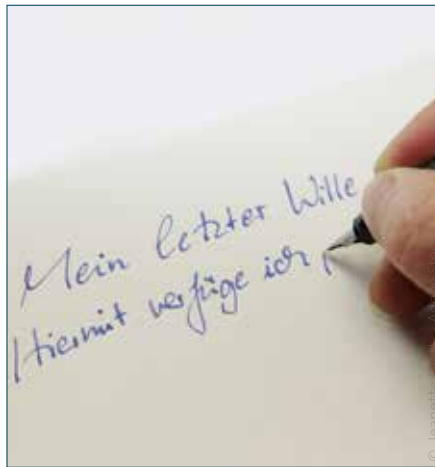 Mein letzter Wille
Hiermit verfüge ich,
© Jeanett